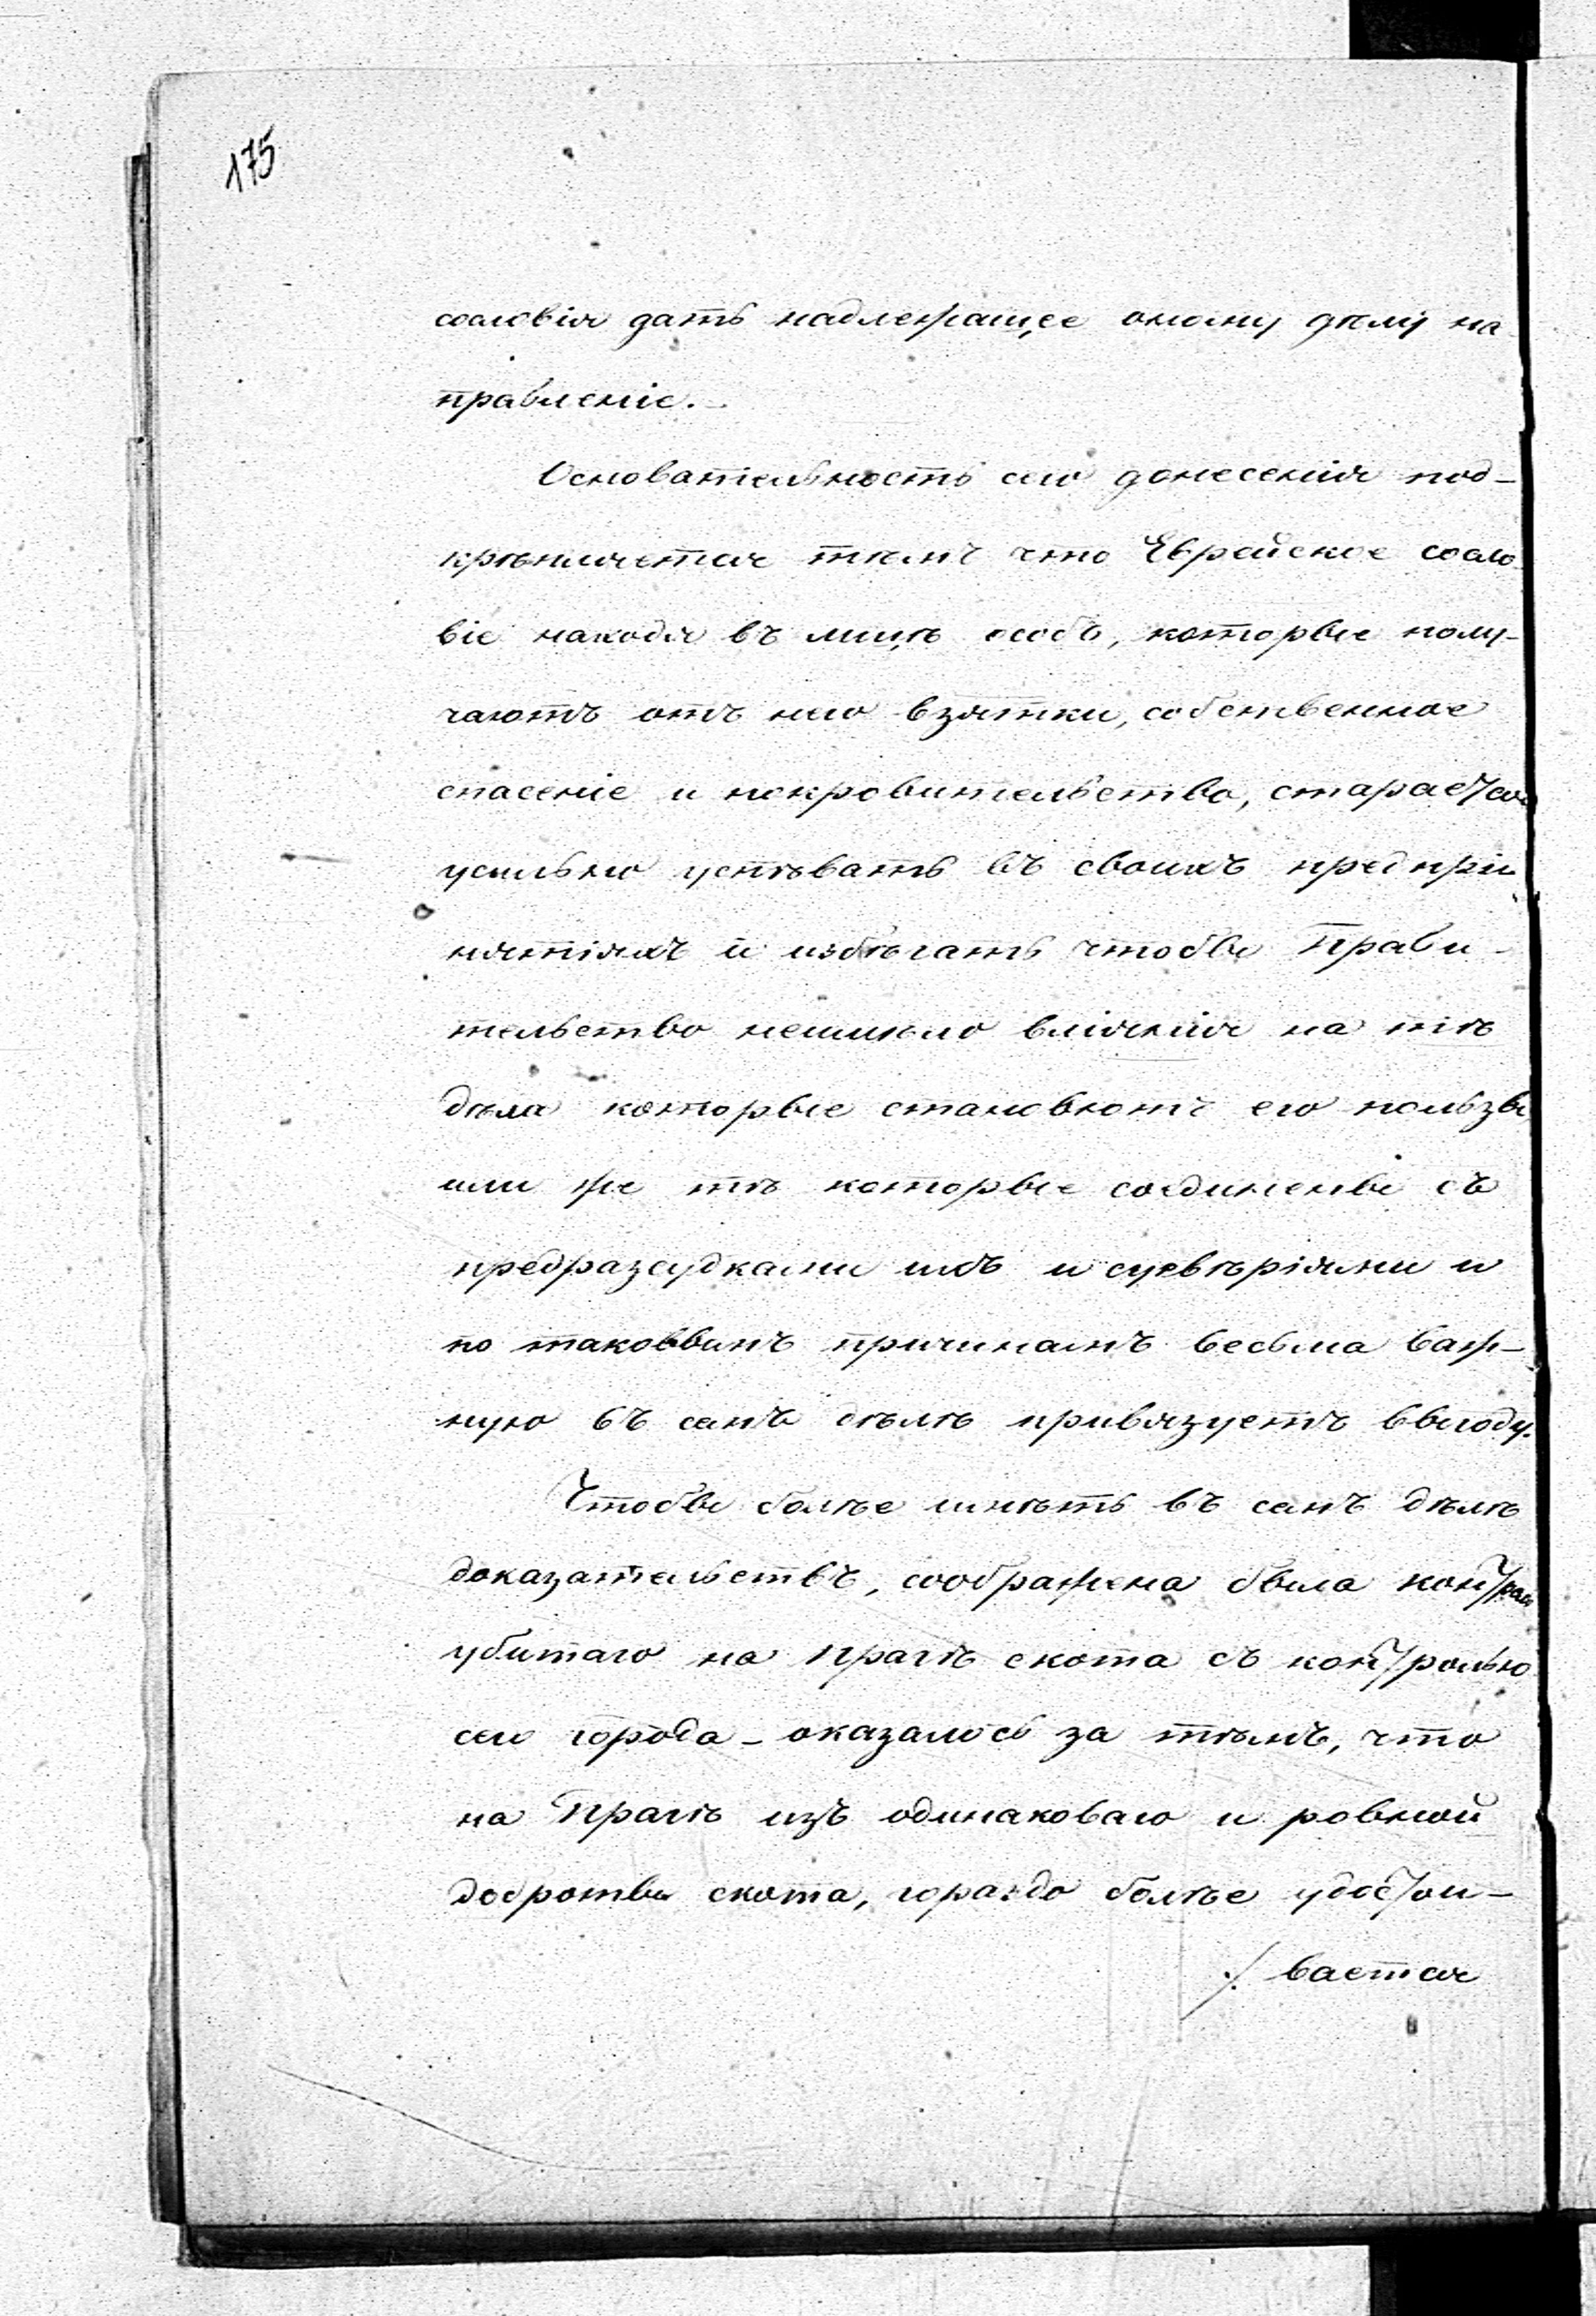 175
сословія дать надлежащее оному дѣлу на
правленіе. -
Основательность сего донесенія под-
крѣпляется тѣмъ что Еврейское сосло
віе находя въ лицѣ особъ, которые полу-
чаютъ отъ него взятки, собственное
спасеніе и покровительство, старается
усильно успѣвать въ своихъ предпрі
нятіяхъ и избѣгать чтобы Прави-
тельство неимѣло вліянія на тѣ
дѣла которые становютъ его пользы
или же тѣ которые соединены съ
предразсудками ихъ и суевѣріями и
по таковымъ причинамъ весьма важ-
ную въ семъ дѣлѣ привязуетъ выгоду.
Чтобы болѣе имѣть въ семъ дѣлѣ
доказательствъ, соображена была
убитаго на Прагѣ скота съ контролью
сего города - оказалось за тѣмъ, что
на Прагѣ изъ одинаковаго и ровной
доброты скота, гораздо болѣе удостои-
./. вается